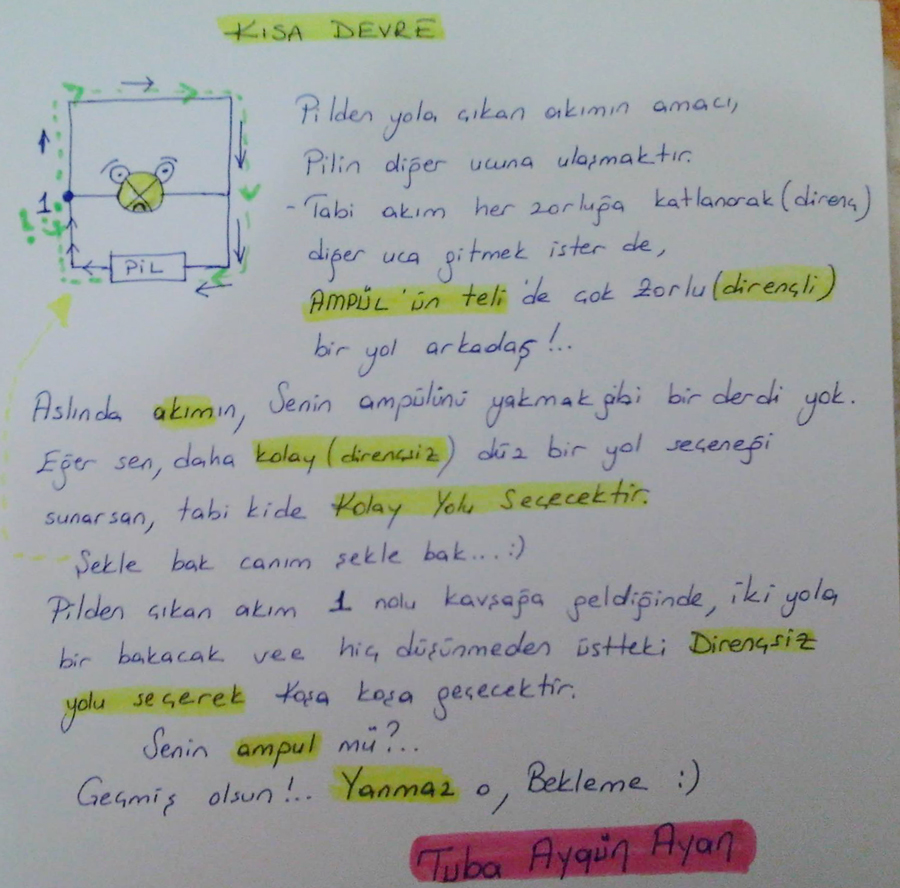 KISA DEVRE
1
PİL
Pilden yola çıkan akımın amacı,
Pilin diğer ucuna ulaşmaktır.
- Tabi akım her zorluğa katlanarak (direnç)
diğer uca gitmek ister de,
AMPÜL'ün teli'de çok zorlu (dirençli)
bir yol arkadaş!..
Aslında akımın, Senin ampülünü yakmak gibi bir derdi yok.
Eğer sen, daha kolay (dirençsiz) düz bir yol seçeneği
sunarsan, tabi kide Kolay Yolu Seçecektir.
Şekle bak canım şekle bak...:)
Pilden çıkan akım 1 nolu kavşağa geldiğinde, iki yola
bir bakacak vee hiç düşünmeden üstteki Dirençsiz
yolu seçerek koşa koşa geçecektir.
Senin ampul mü?..
Geçmiş olsun!.. Yanmaz o, Bekleme :)
Tuba Aygün Ayan